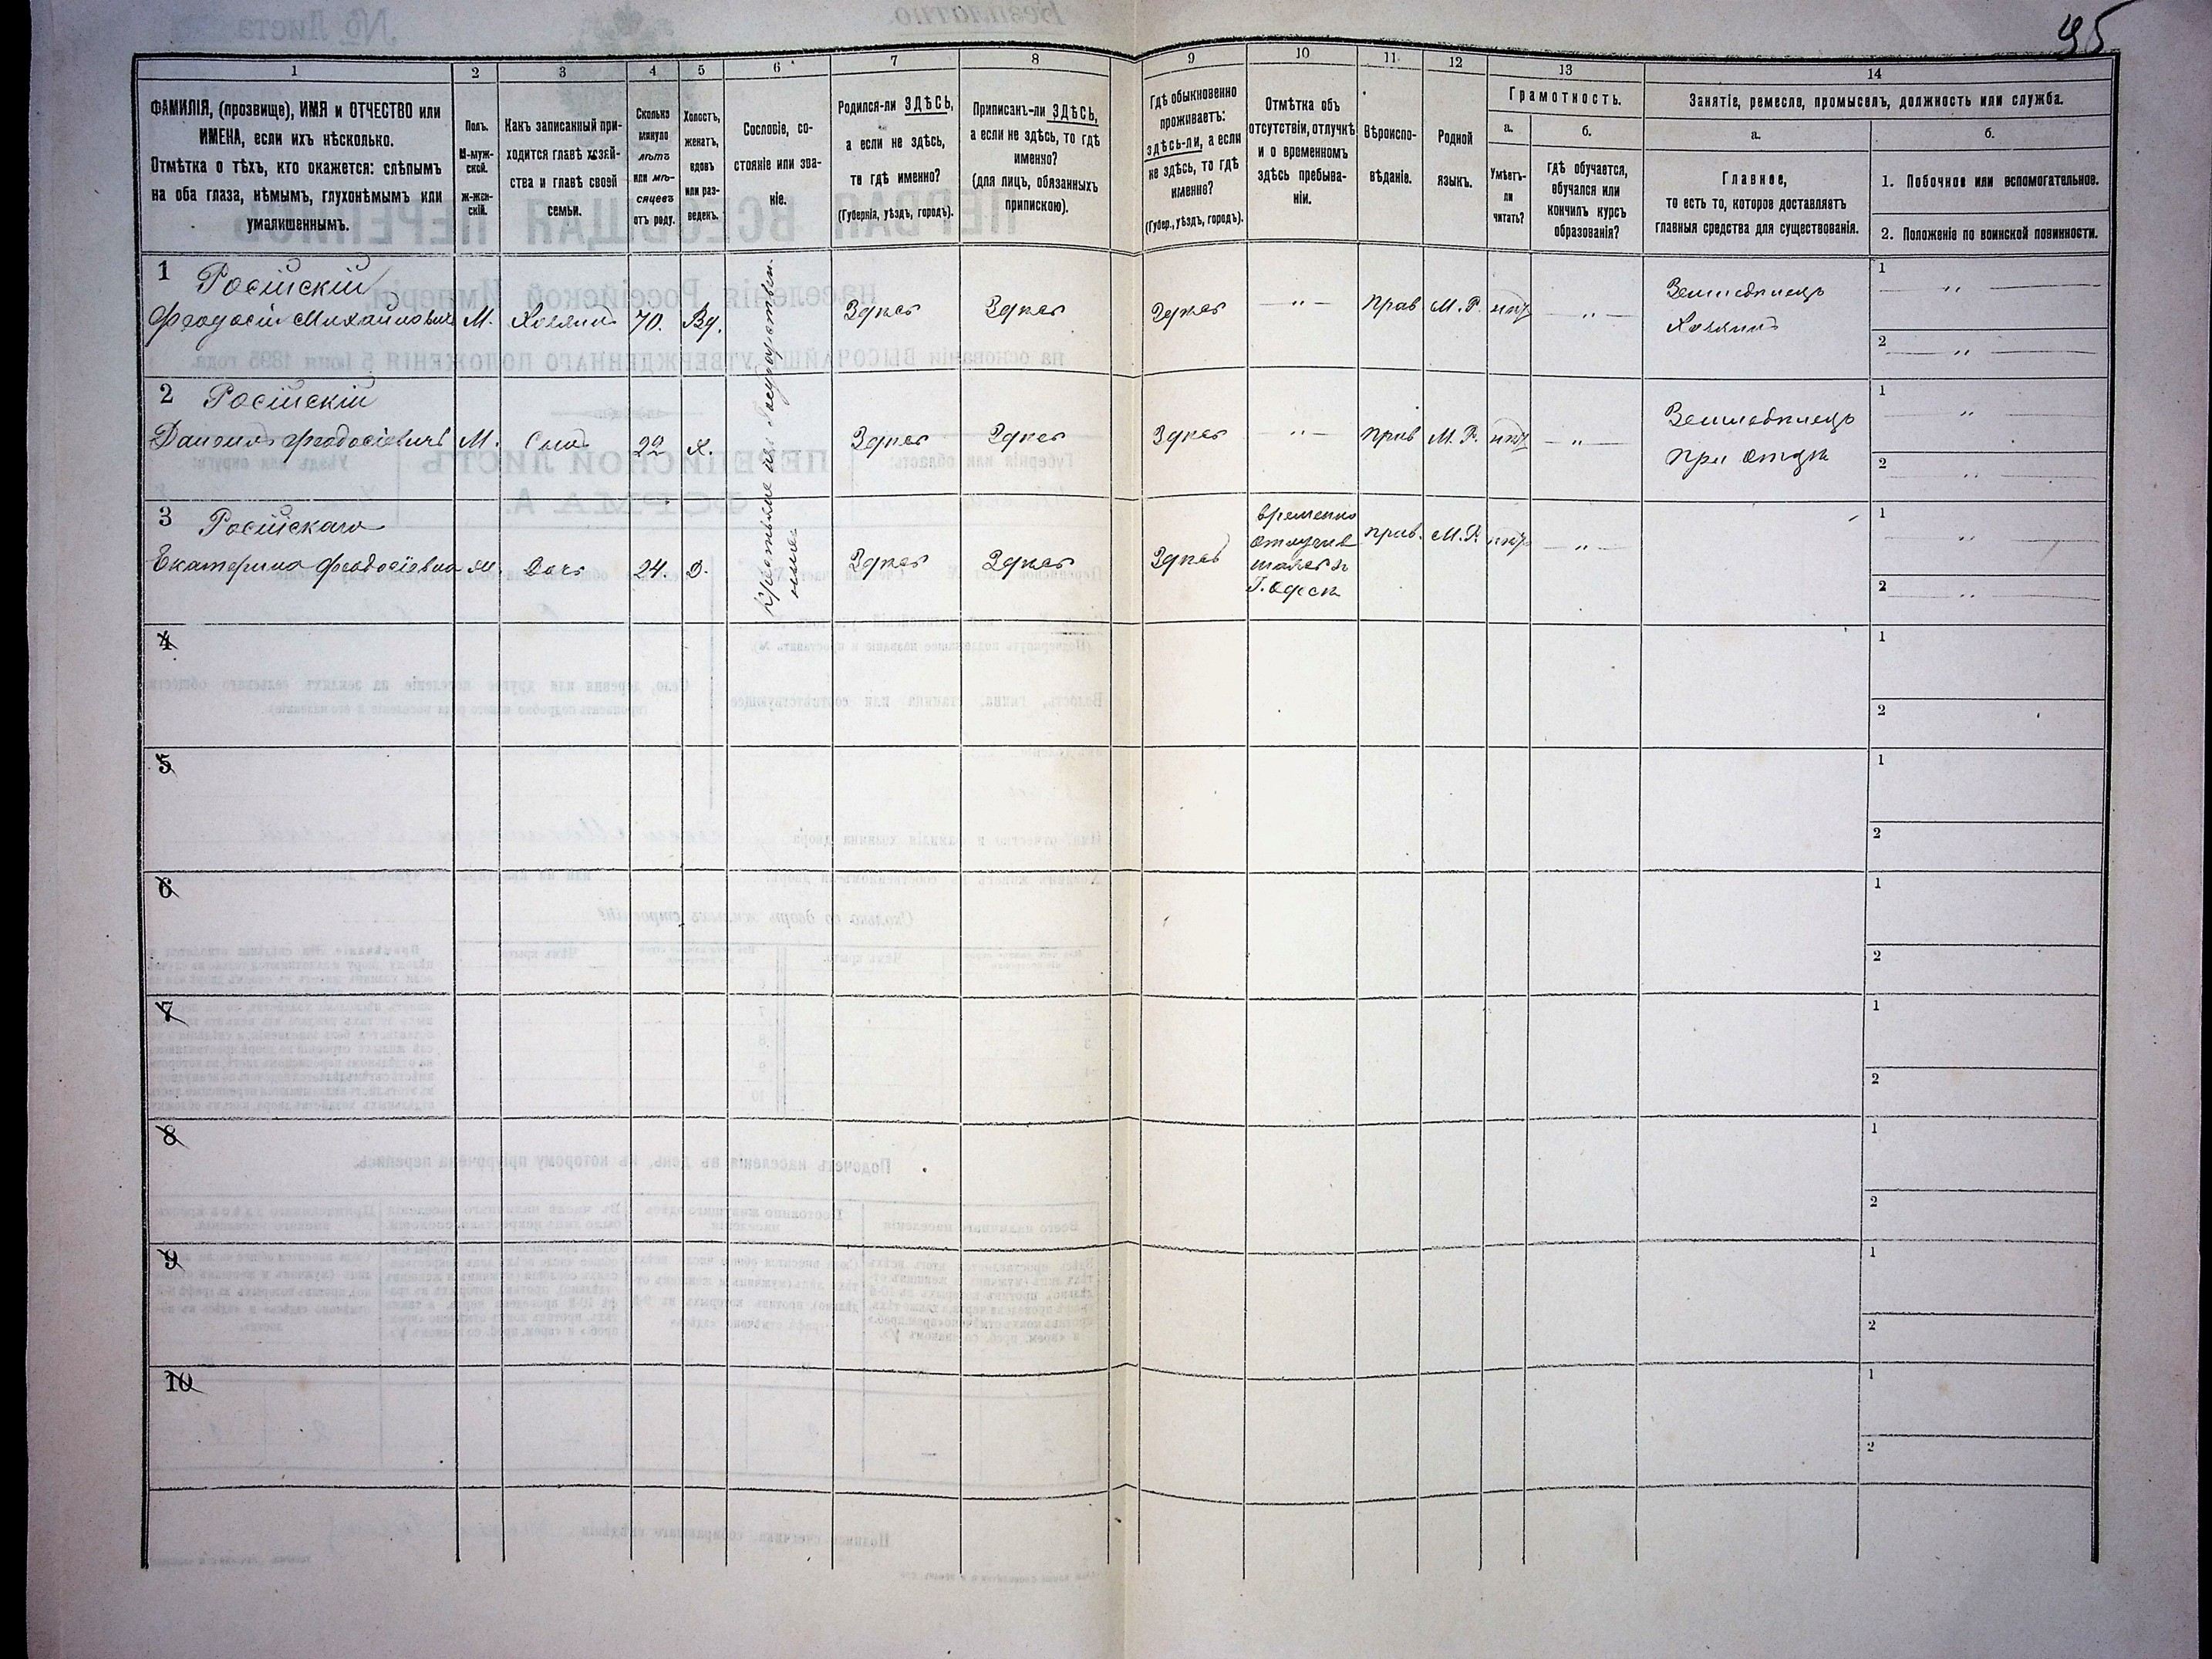 95
1
2
3
4
5
6
7
8
9
10
11
12
13
14
ФАМИЛІЯ, (прозвище), ИМЯ и ОТЧЕСТВО или
ИМЕНА, если ихъ нѣсколько.
Отмѣтка о тѣхъ, кто окажется: слѣпымъ
на оба глаза, нѣмымъ, глухонѣмымъ или
умалишеннымъ.
Полъ.
М-муж-
ской.
Ж-жен-
скій.
Какъ записанный при-
ходится главѣ хозяй-
ства и главѣ своей
семьи.
Сколько
минуло
лѣтъ
или мѣ-
сяцевъ
отъ роду.
Холостъ,
женатъ,
вдовъ
или раз-
веденъ.
Сословіе, со-
стояніе или зва-
ніе.
Родился-ли ЗДѢСЬ,
а если не здѣсь,
то гдѣ именно?
(Губернія, уѣздъ, городъ).
Приписанъ-ли ЗДѢСЬ,
а если не здѣсь, то гдѣ
именно?
(для лицъ, обязанныхъ
припискою).
Гдѣ обыкновенно
проживаетъ:
здѣсь-ли, а если
не здѣсь, то гдѣ
именно?
(Губер., уѣздъ, городъ).
Отмѣтка объ
отсутствіи, отлучкѣ
и о временномъ
здѣсь пребыва-
ніи.
Вѣроиспо-
вѣданіе.
Родной
языкъ.
Грамотность.
а.
Умѣетъ-
ли
читать?
б.
Гдѣ обучается,
обучался или
кончилъ курсъ
образованія?
Занятіе, ремесло, промыселъ, должность или служба.
а.
Главное,
то есть то, которое доставляетъ
главныя средства для существованія.
б.
1. Побочное или вспомогательное.
2. Положеніе по воинской повинности.
1 Російскій
Феодосій Михайловичъ М. Хозяинъ 70. Вд. Здѣсь Здѣсь Здѣсь — " — Прав. М. Р. нѣтъ — " —
Земледѣлецъ
Хозяинъ
1 — " —
2 — " —
Крестьяне изъ Государствен-
ныхъ
2 Російскій
Данило Феодосіевичъ М. Сынъ 22 Х. Здѣсь Здѣсь Здѣсь — " — Прав М. Р. нѣтъ — " —
Земледѣлецъ
При отцѣ
1 — " —
2 — " —
3 Російскаго
Екатерина Феодосіевна Дочь 24. Д. Здѣсь Здѣсь Здѣсь
временно
Г. Одесѣ
Прав. М. Р. нѣтъ — " —
1 — " —
2 — " —
4
1
2
5
1
2
6
1
2
7
1
2
8
1
2
9
1
2
10
1
2